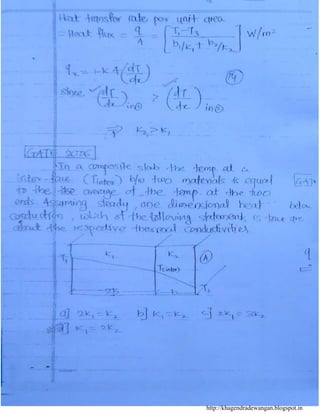 Heat transfer rate per unit area
= Heat flux = q/A = [ T1-T3 / b1/K1 + b2/K2 ] W/m²
qx = -KA (dT/dx)
Since (dT/dx) in① > (dT/dx) in②
⇒ K2 > K1
GATE 2006
In a composite slab the temp. at
inter-face (Tinter) b/w two materials is equal
to the average of the temp. at the two
ends. Assuming steady, one dimensional heat
conduction, which of the following statement is true
about the respective thermal conductivities
T1 K1 K2
T(inter)
2b b T2
a] 2K1 = K2 b] K1 = K2 c] 2K1 = 3K2
d] K1 = 2K2
http://khagendradewangan.blogspot.in